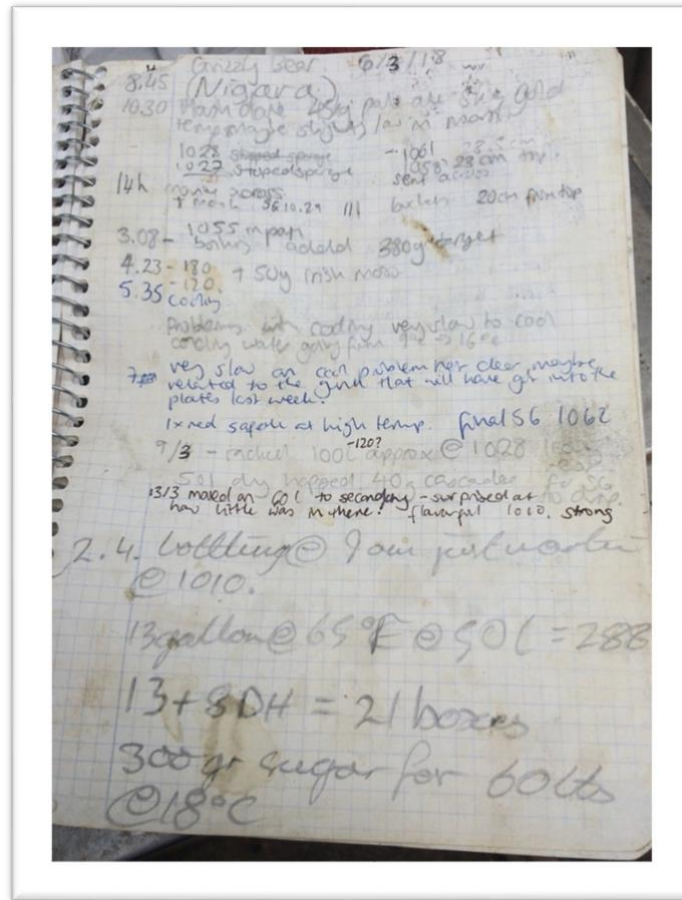 Grizzly Bear 6/3/18
8.45 (Nigara)
10.30 45kg pale ale 5kg gold
temp maybe slightly low in mash
1028 stopped sparge - 1061 28.5cm
1027 stopped sparge 1058 28 cm top.
14h sent across
SG 10.29 20cm from top
3.08 - 1055 in pan
boiling added 380g target
4.23 - 180 + 50g irish moss
5.35 - 120.
cooling
Problems with cooling very slow to cool
cooling water going from 9°c → 16°c
very slow an cool problem not clear, maybe
related to the gunk that will have got into the
plates last week.
1x red at high temp. final SG 1062
-120?
9/3 - racked 100L approx @ 1028
50l dry hopped. 40g cascades for SG
to drop.
13/3 moved on 60 l to secondary - surprised at
how little was in there! flavorful 1010. strong
2.4. bottling @
@ 1010.
13 gallon @ 65°F @ 50L = 288
13 + 8DH = 21 boxes
300gr sugar for 60lts
@18°C